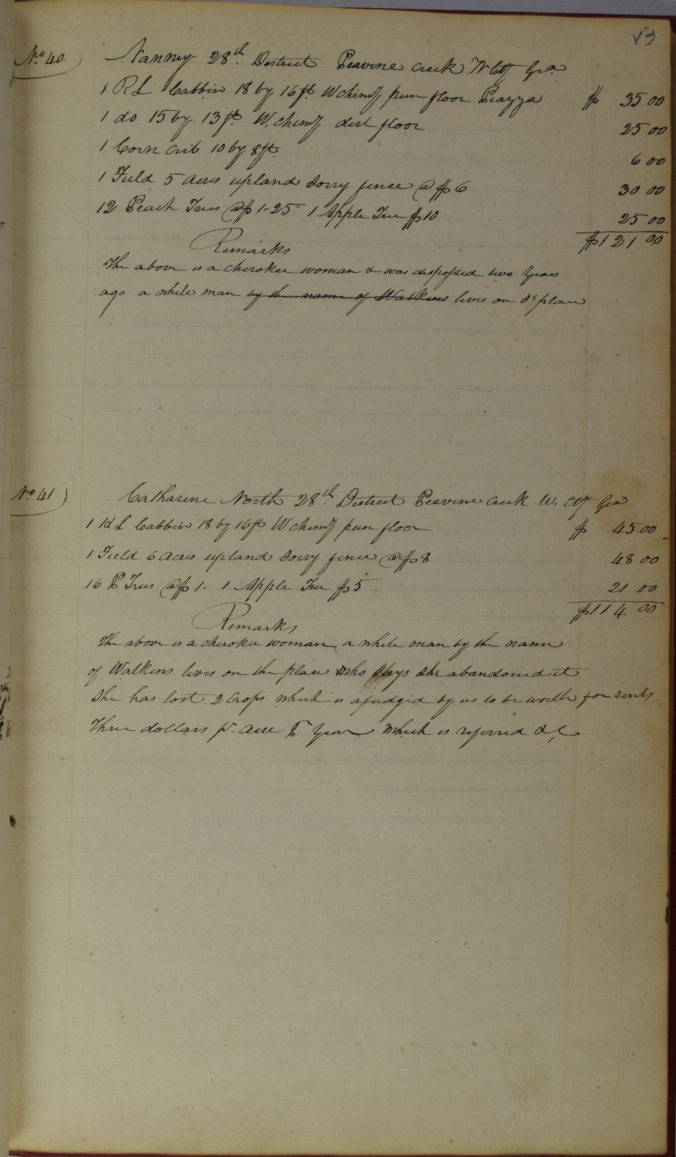 No 40 Nanney 28th District Peavine creek W Cty Ga
1 R L Cabbin 18 by 16 ft W chimy pun floor Piazza $ 35 00
1 do 15 by 13 ft W. chimy dirt floor 25 00
1 Corn crib 10 by 8 ft 6 00
1 Field 5 acres upland sorry fence @ $6 30 00
12 Peach Trees @ $1.25 1 Apple Tree $10 25 00
$121 00
Remarks
The above is a cherokee woman & was dispossed two Years
ago a white man by the name of Walkins lives on sd place
No 41 Catharine North 28th District Peavine creek W. Cty Ga
1 Hd L Cabbin 18 by 16 ft W chimy pun floor $ 45 00
1 Field 6 acres upland sorry fence @ $8 48 00
16 P Trees @ $1. 1 Apple Tree $5 21 00
$114 00
Remarks
The above is a cherokee woman a white man by the name
of Walkins lives on the place who says she abandoned it
She has lost 2 crops which is ajudged by us to be worth for rents
Three dollars pr. acre Year which is referred &c